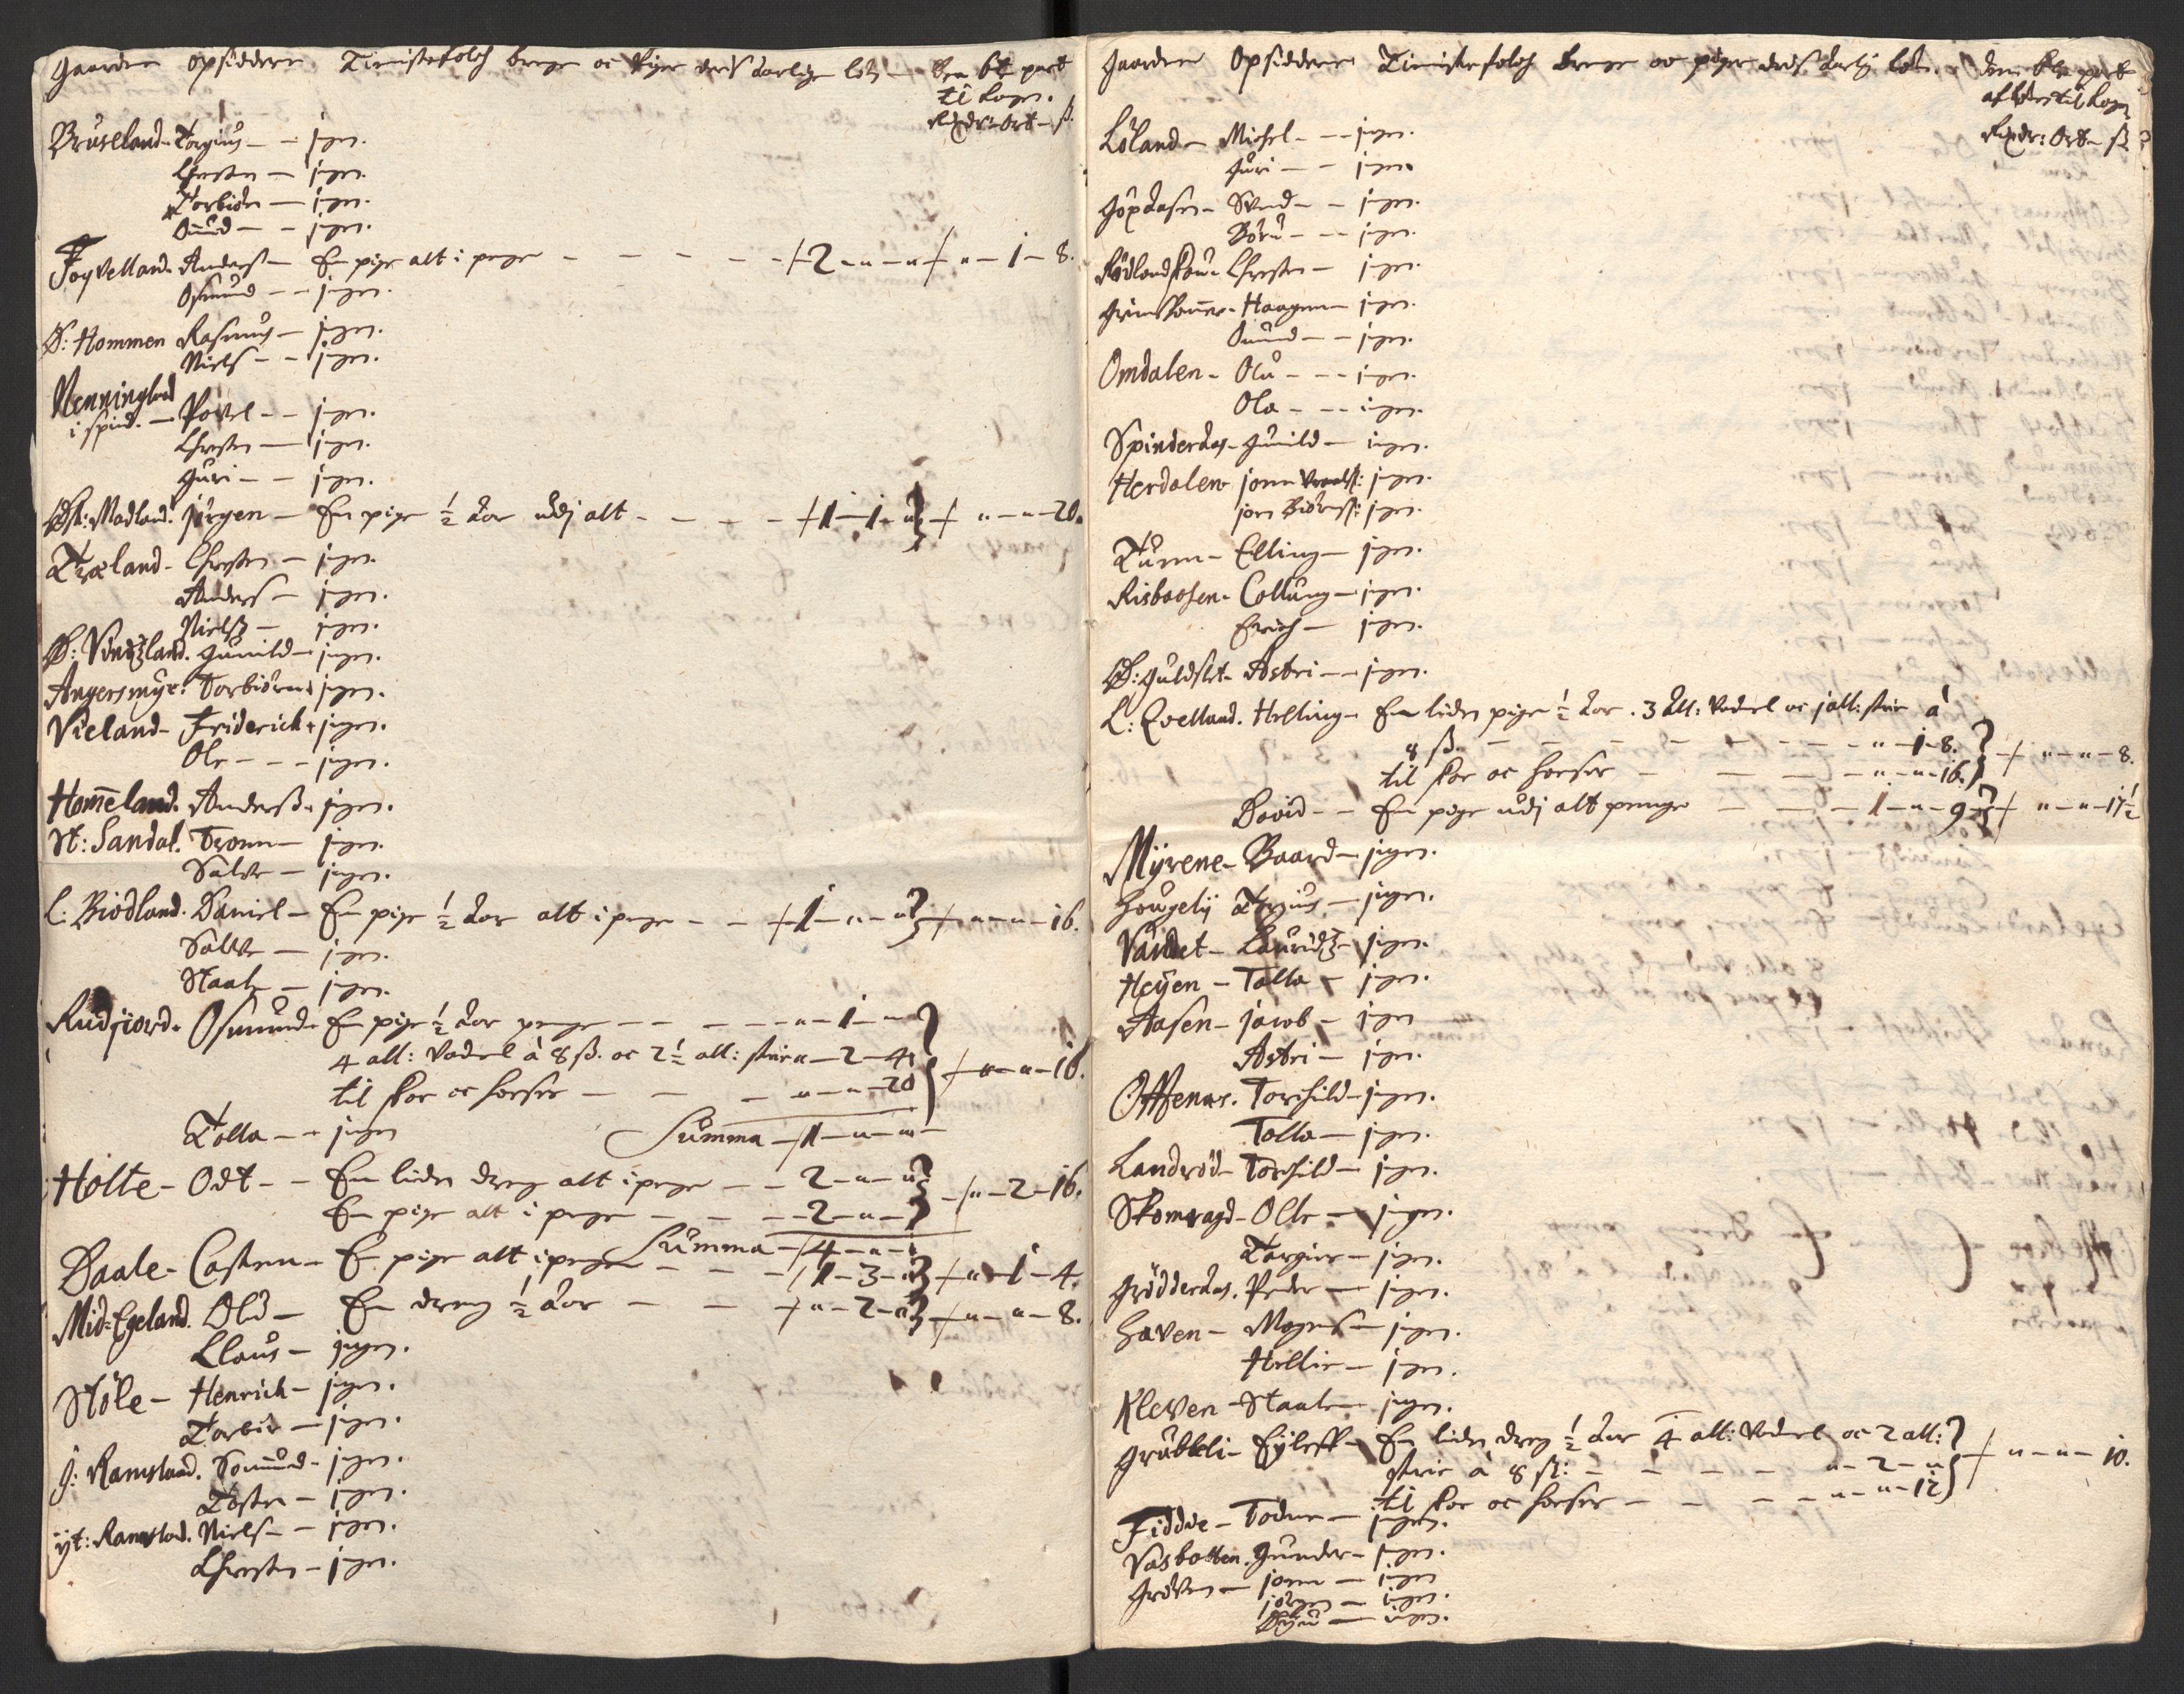 Gaarden Opsiddere Tienistefolch drenge oc Piger deris aarlige løn Den 6te part
til kongn.
Rixdr: Ort ß.
Bruseland Torgius ingen.
Christen ingen.
Torbiøn ingen.
Omund ingen.
Foyvelland Anders En pige alt i penge 2 " " " 1 8.
Osmund ingen.
Ø: Hommen Rasmus ingen.
Niels ingen.
Nenningland
i spind. Povel ingen.
Christen ingen.
Guri ingen.
Øst: Madland. Jørgen En pige ½ aar udj alt 1 1 " " " 20.
Træland Christen ingen.
Anders ingen.
Nielß ingen.
Ø: Vintzland. Gunild ingen.
Angersmyr. Torbiørn ingen.
Vieland Friderich ingen.
Ole ingen.
Hom̃eland. Anderß ingen.
St: Sandal. Tronn ingen.
Salve ingen.
L: Biodland. Daniel En pige ½ aar alt i penge 1 " " " " 16.
Salve ingen.
Staale ingen.
Rudjiord. Osmund En pige ½ aar penge " 1 "
4 all: Vadmel à 8 ß. oc 2½ all: strie " 2 4 " " 16.
til skoe oc hoeser " " 20
Tolla ingen Summa 1 " "
Holte Odt En liden dreng alt i penge 2 " " " 2 16.
En pige alt i penge 2 " "
Summa 4 " "
Daale Casten En pige alt i penge 1 3 " " 1 4.
Mid-Egeland. Olu En dreng ½ aar " 2 " " " 8.
Claus ingen.
Støle Henrich ingen.
Torbiø ingen.
J: Ramsland. Somund ingen.
Tosten ingen.
yt: Ramsland. Niels ingen.
Christen ingen.
Gaarden Opsiddere Tienistefolch drenge oc piger deris aarlig løn. Den 6te part
af løn til kongn
Rixdr: Ort ß
Løland Michel ingen.
Guri ingen.
Gopdasen Svend ingen.
Boru ingen.
Rødlandskou Christen ingen.
Grimskouer Haagen ingen.
Omund ingen.
Omdalen Olu ingen.
Ola ingen.
Spinderaas Gunild ingen.
Herdalen Jonn ingen.
Jon Biørnß: ingen.
Tunn Elling ingen.
Risbaasen Collung ingen.
Erich ingen.
Ø: Guldset Astri ingen.
L: Qvelland. Helling En liden pige ½ aar. 3 all: Vadmel oc 1 all: strie à
8 ß. " 1 8. " " 8.
til skoe oc hoeser " " 16.
David En pige udj alt penge 1 " 9 " " 17½
Myrene Baard ingen.
Hougelij Torgius ingen.
Vandet Lauridtz ingen.
Heyen Tolla ingen.
Aasen Jacob ingen
Astri ingen.
Offenes. Torchild ingen.
Tolla ingen.
Landrød Torchild ingen.
Skomragd Olle ingen.
Torgier ingen.
Grødderaas. Peder ingen.
Haven Mogens ingen.
Hellie ingen.
Kleven Staale ingen.
Grubbli Eyleff En liden dreng ½ aar 4 all: Vadmel oc 2 all:
strie à 8 ß: " 2 " " " 10.
til skoe oc hoeser " " 12
Fidde Todne ingen.
Vasbotten. Gunder ingen.
Grøven Jonn ingen
Jørgen ingen.
ingen.